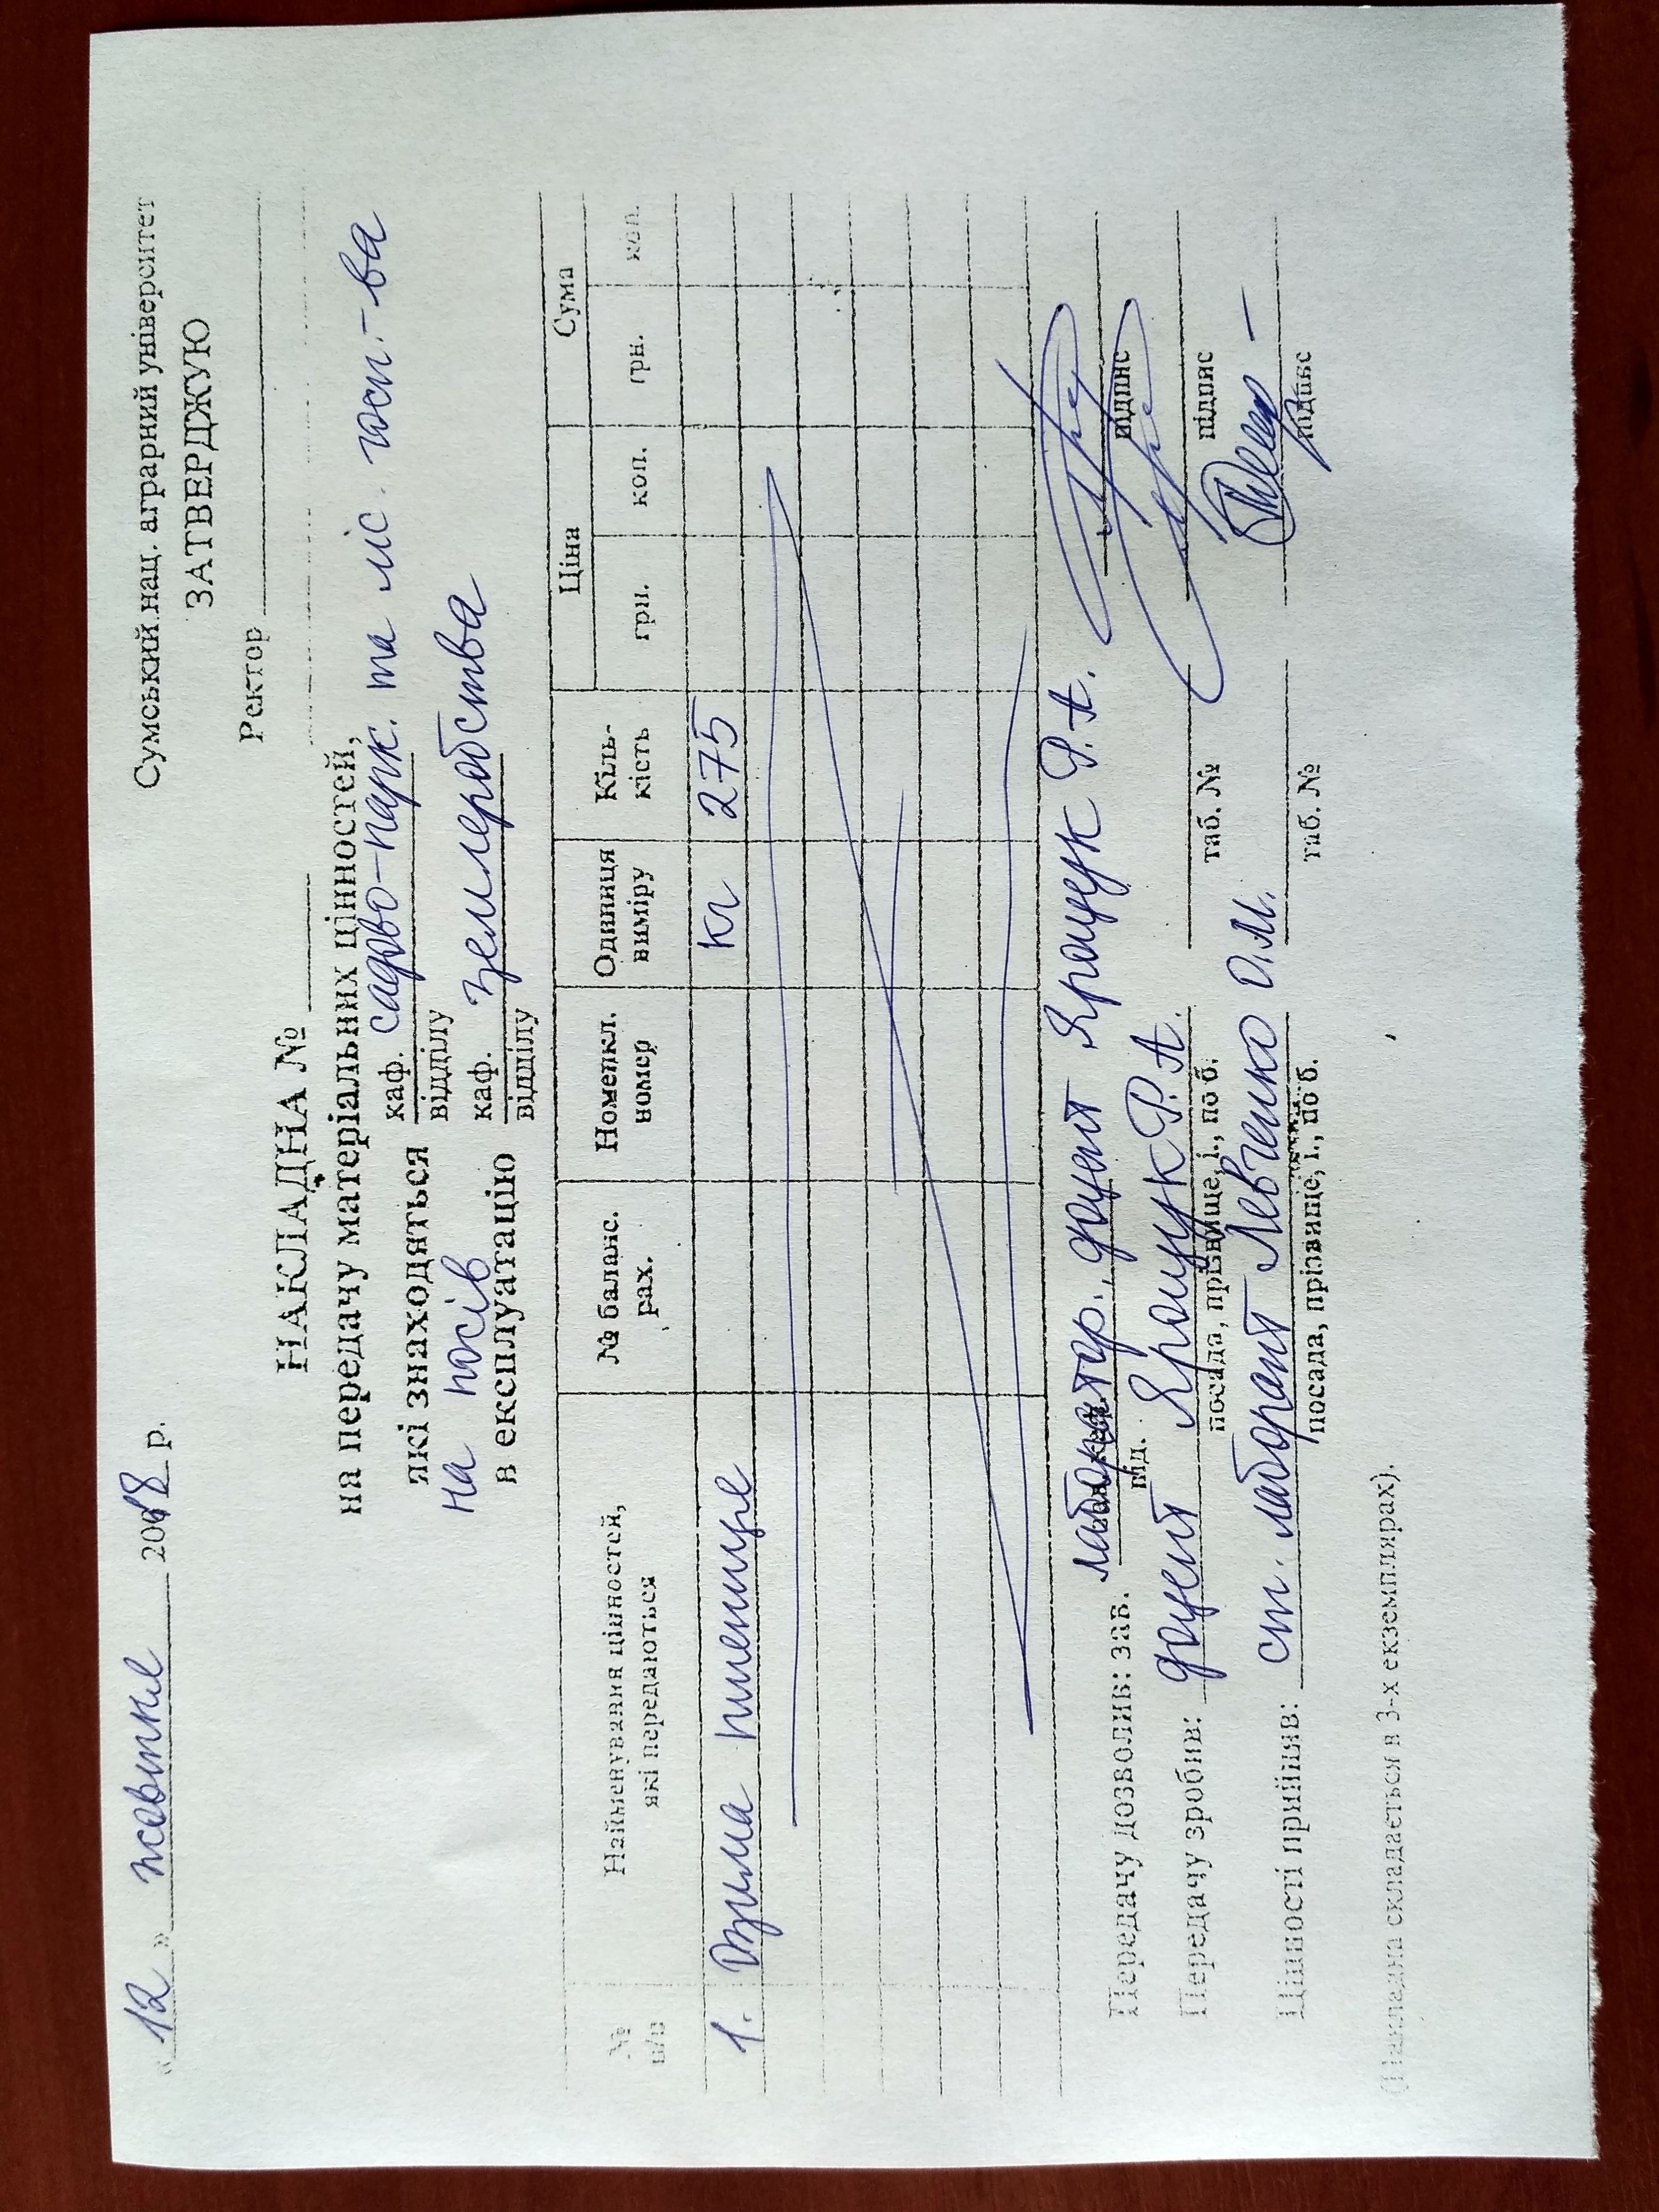 Сумський нац. аграрний університет
« 12 » жовтня 2018 р.
ЗАТВЕРДЖУЮ
Ректор
НАКЛАДНА №
на передачу матеріальних цінностей,
які знаходяться каф. садово-парк. та ліс. госп-ва
відділу
на посів
в експлуатацію каф. землеробства
відділу
№ п/п Найменування цінностей, які передаються № баланс. рах. Номенкл. номер Одиниця виміру Кіль-кість Ціна Сума
грн. коп. грн. коп.
1. Озима пшениця кг 275
Передачу дозволив: зав. лаборатор. доцент Ярощук Р.А.
від. підпис
Передачу зробив: доцент Ярощук Р.А. таб. №
посада, прізвище, і., по б. підпис
Цінності прийняв: ст. лаборант Левченко О.М. таб. №
посада, прізвище, і., по б. підпис
(Накладна складається в 3-х екземплярах).